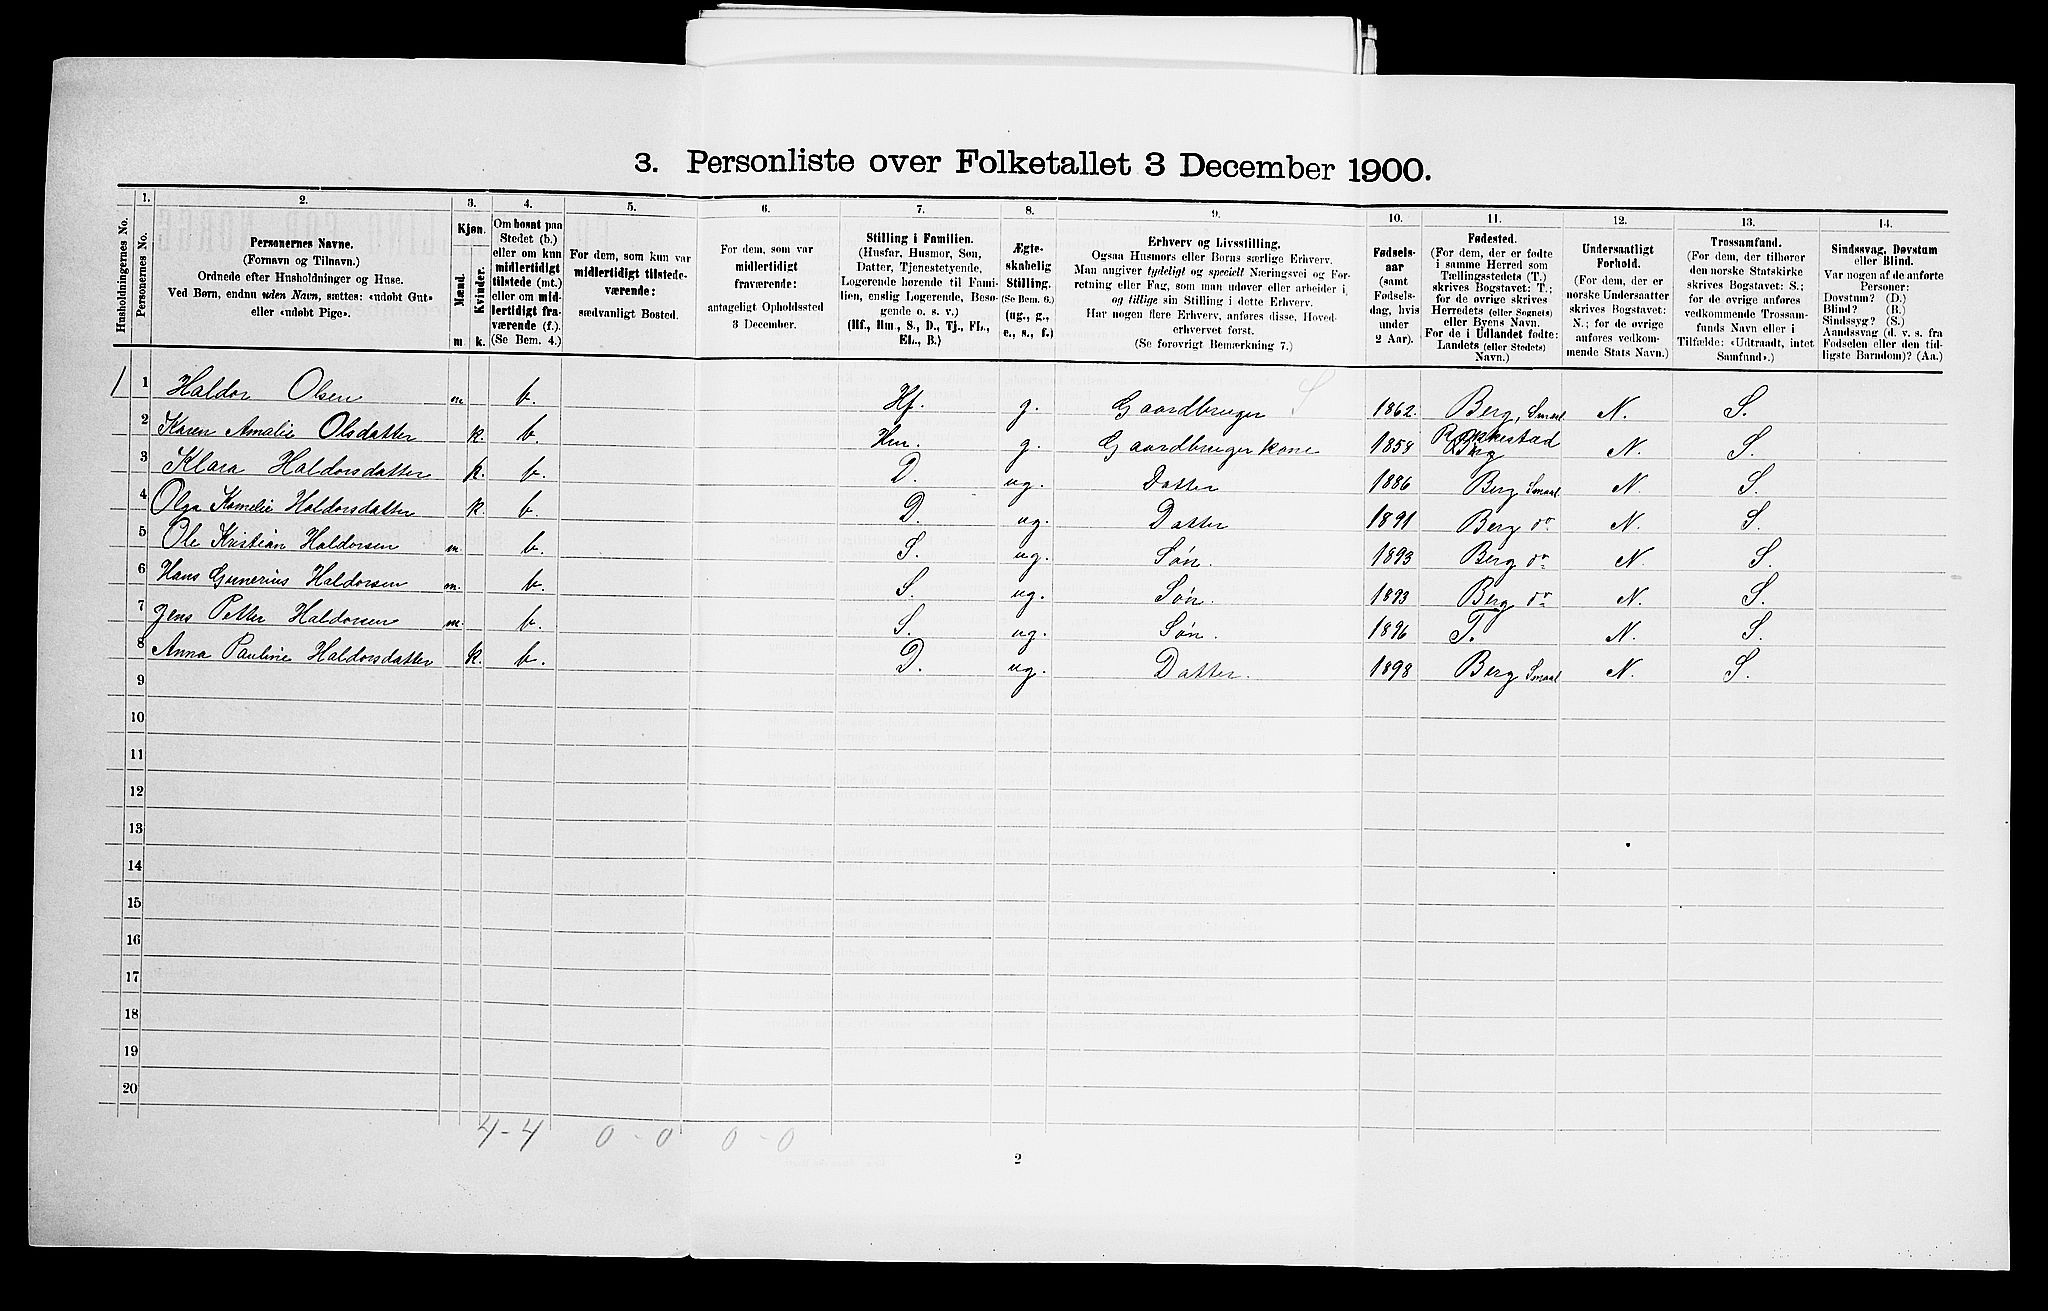 3. Personliste over Folketallet 3 December 1900.
Husholdningernes No.
1.
Personernes No.
2.
Personernes Navne.
(Fornavn og Tilnavn.)
Ordnede efter Husholdninger og Huse.
Ved Børn, endnu uden Navn, sættes: «udøbt Gut»
eller «udøbt Pige».
3.
Kjøn.
Mænd.
Kvinder.
m.
k.
4.
Om bosat paa
Stedet (b.)
eller om kun
midlertidigt
tilstede (mt.)
eller om mid-
lertidigt fra-
værende (f.)
(Se Bem. 4.)
5.
For dem, som kun var
midlertidigt tilstede-
værende:
sædvanligt Bosted.
6.
For dem, som var
midlertidigt
fraværende:
antageligt Opholdssted
3 December.
7.
Stilling i Familien.
(Husfar, Husmor, Søn,
Datter, Tjenestetyende,
Logerende hørende til Fami-
lien, enslig Logerende, Besø-
gende o. s. v.)
(Hf., Hm., S., D., Tj., Fl.,
El., B.)
8.
Ægte-
skabelig
Stilling.
(Se Bem. 6.)
(ug., g.,
e., s., f.)
9.
Erhverv og Livsstilling.
Ogsaa Husmors eller Børns særlige Erhverv.
Man angiver tydeligt og specielt Næringsvei og For-
retning eller Fag, som man udøver eller arbeider i,
og tillige sin Stilling i dette Erhverv.
Har nogen flere Erhverv, anføres disse, Hoved-
erhvervet først.
(Se forøvrigt Bemærkning 7.)
10.
Fødsels-
aar
(samt
Fødsels-
dag, hvis
under
2 Aar).
11.
Fødested.
(For dem, der er fødte
i samme Herred som
Tællingsstedets (T.)
skrives Bogstavet: T.;
for de øvrige skrives
Herredets (eller Sognets)
eller Byens Navn.
For de i Udlandet fødte:
Landets (eller Stedets)
Navn.)
12.
Undersaatligt
Forhold.
(For dem, der er
norske Undersaatter
skrives Bogstavet:
N.; for de øvrige
anføres vedkom-
mende Stats Navn.)
13.
Trossamfund.
(For dem, der tilhører
den norske Statskirke
skrives Bogstavet: S.;
for de øvrige anføres
vedkommende Trossam-
funds Navn eller i
Tilfælde: «Udtraadt, intet
Samfund».)
14.
Sindssvag, Døvstum
eller Blind.
Var nogen af de anførte
Personer:
Døvstum? (D.)
Blind? (B.)
Sindssyg? (S.)
Aandssvag (d. v. s. fra
Fødselen eller den tid-
ligste Barndom)? (Aa.)
1 1 Haldor Olsen m b. Hf. g. Gaardbruger S 1862. Berg, Smaal N. S.
2 Karen Amalie Olsdatter k. b. Hm. g. Gaardbruger kone 1858 Rakkestad N. S.
3 Klara Haldorsdatter k. b. D. ug. Datter 1886 Berg Smaal N. S.
4 Olga Kamelie Haldorsdatter k. b. D. ug. Datter 1891 Berg do N. S.
5 Ole Kristian Haldorsen m. b. S. ug. Søn. 1893 Berg do N. S.
6 Hans Gunerius Haldorsen m. b. S. ug. Søn. 1893 Berg do N. S.
7 Jens Petter Haldorsen m. b. S. ug. Søn. 1896 T. N. S.
8 Anna Pauline Haldorsdatter k. b. D. ug. Datter. 1898 Berg Smaal N. S.
9
10
11
12
13
14
15
16
17
18
19
20
4-4 0-0 0-0
2